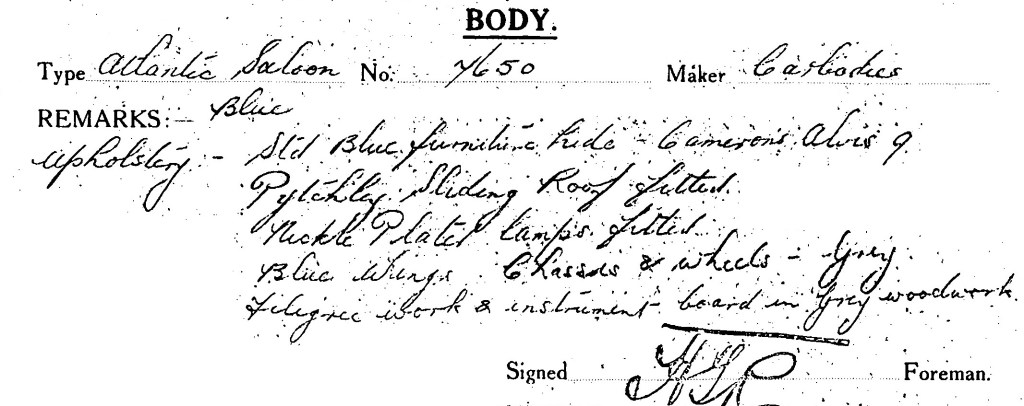 BODY.
Type Atlantic Saloon No: 7650 Maker Carbodies
REMARKS:- Blue
Upholstery - Std Blue furniture hide - Camerons Alvis 9
Pytchley Sliding Roof fitted.
Nickle Plated lamps fitted
Blue Wings Chassis & wheels - Grey
Filigree work & instrument board in Grey woodwork.
Signed Foreman.